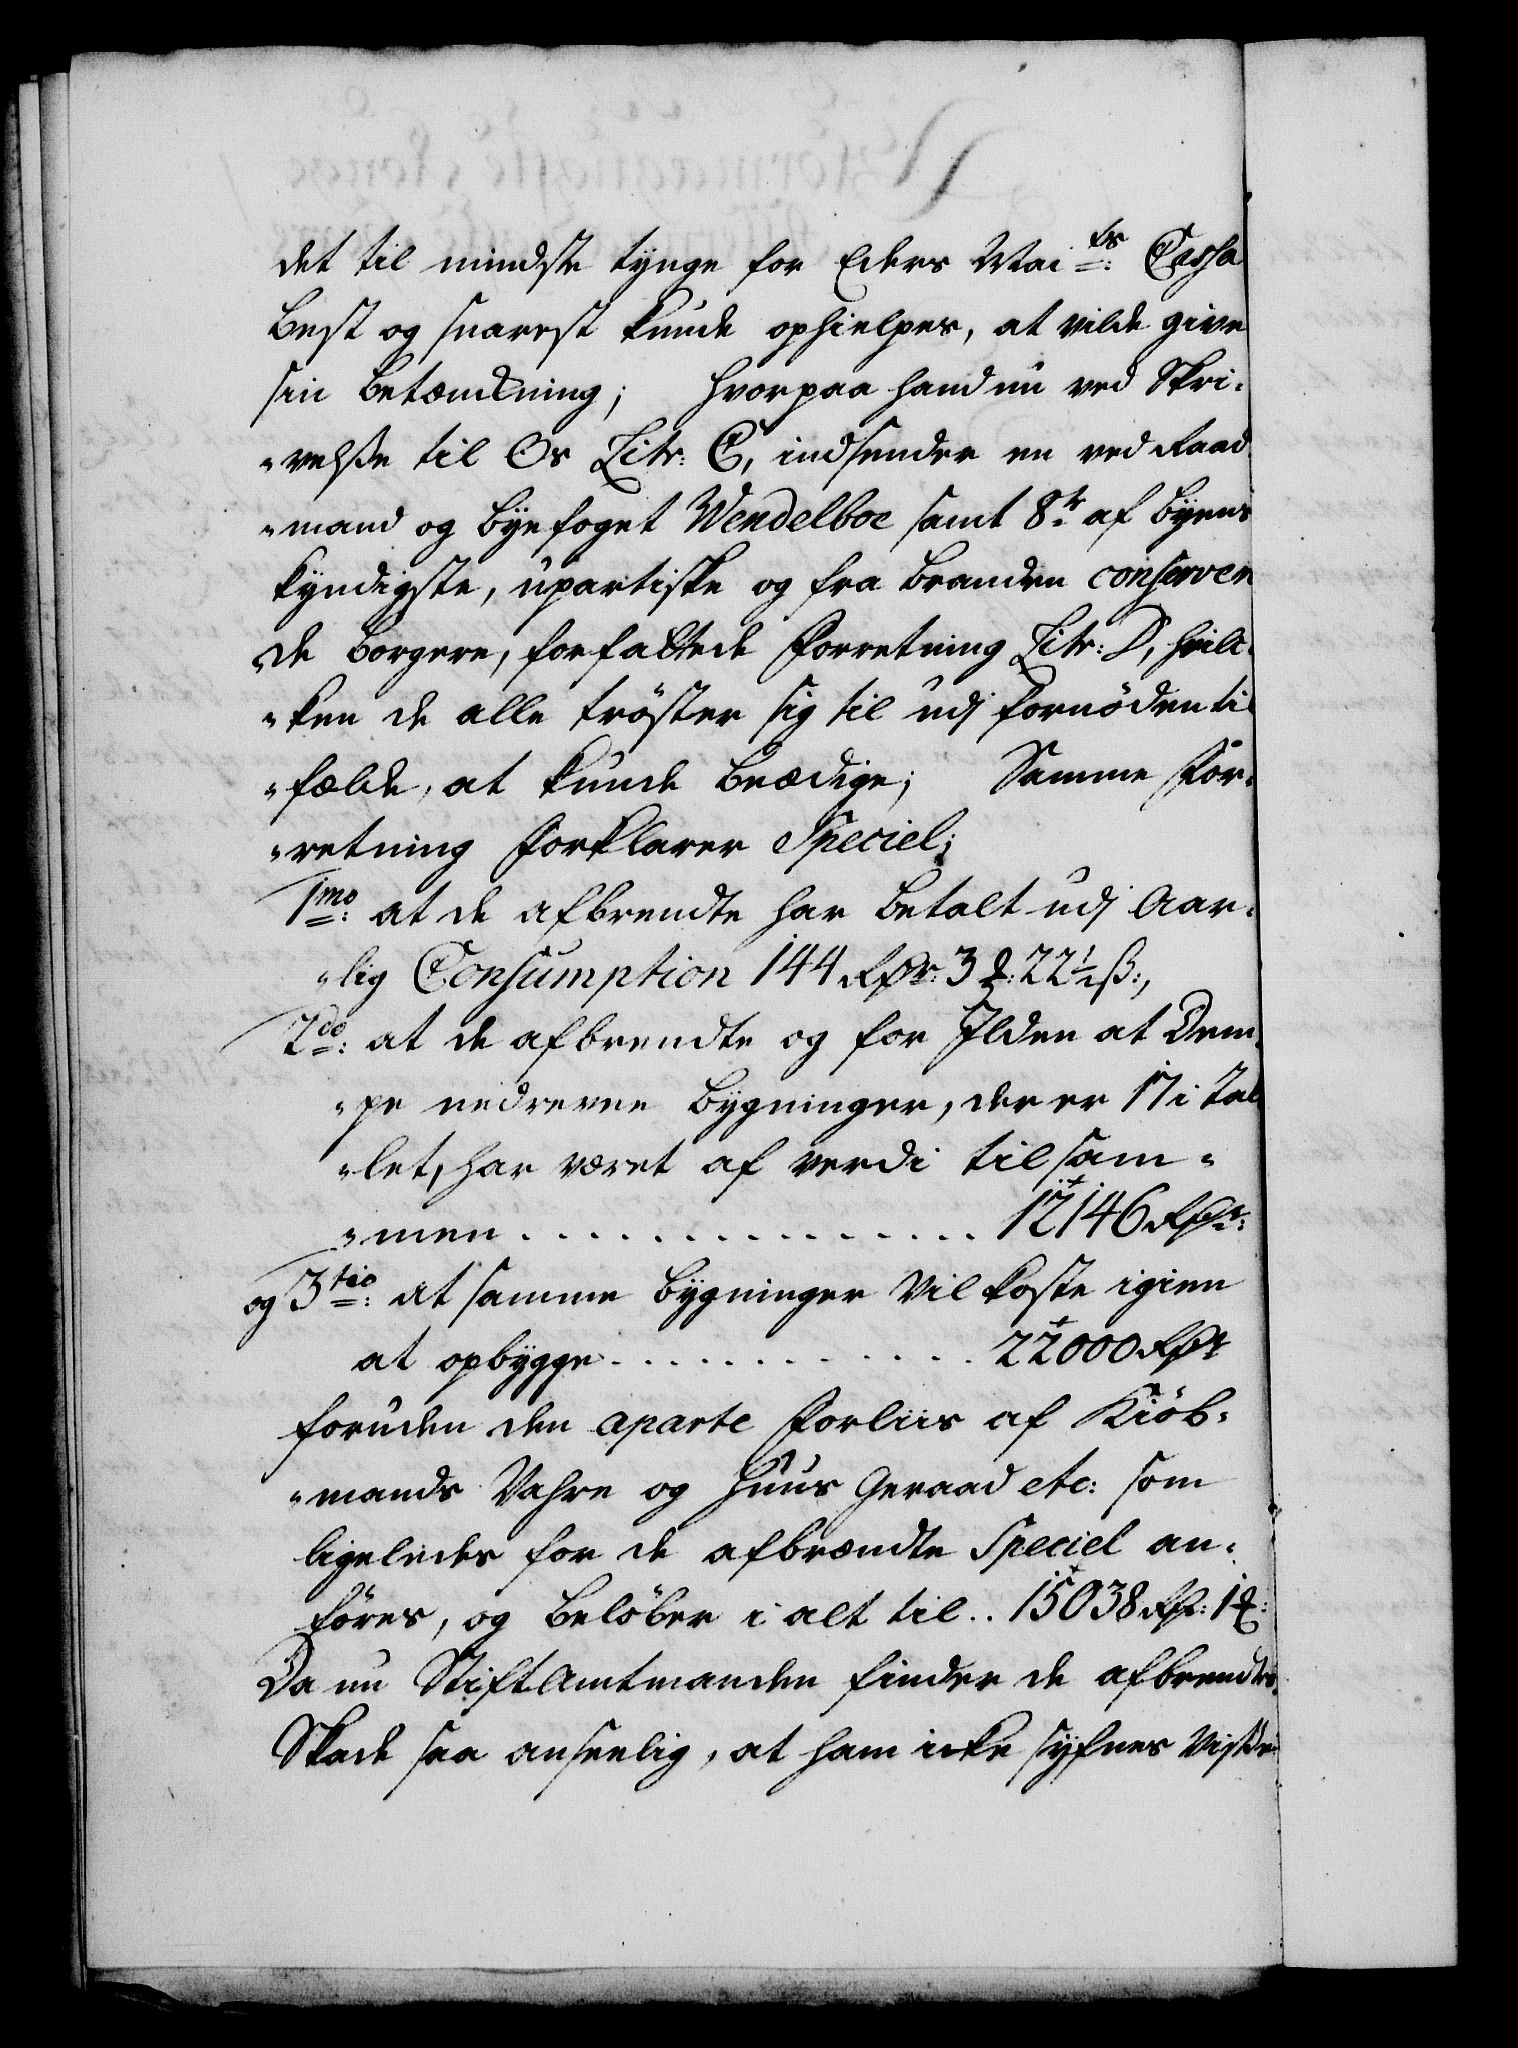 det til mindste tynge for Eders Mai ts: Cassa
best og snarest kunde ophielpes, at vilde give
sin betænkning; hvorpaa hand nu ved Skri-
„velsse til Os Litr: C, indsender en ved Raad
„mand og byefoget Wendelboe samt 8te af byens
kyndigste, upartiske og fra branden conserver
„de borgere, forfattede Forretning Litr: D, hvilc-
„ken de alle tröster sig til udj fornöden til
„fælde, at kunde beædige; Samme For-
„retning forklarer Speciel;
1mo: at de afbrendte har betalt udj Aar-
„lig Consumption 144 Rdr: 3 ₰: 22½ ß:,
2do: at de afbrendte og for Ilden at Dem
„pe nedrevne bygninger, der er 17 i Tal
„let, har været af verdi tilsam-
„men . . . . . . . . . . . . . . . 12146 Rdr:
og 3tio: at samme bygninger vil koste igien
at opbygge . . . . . . . . . . . . 22000 Rdr
foruden den aparte Forliis af Kiöb-
„mands Vahre og Huus geraad etc: som
ligeledes for de afbrændte Speciel an-
föres, og belöber i alt til . . 15038 Rdr: 1 ₰:
Da nu Stiftamtmanden finder de afbrendtes
Skade saa anseelig, at ham icke syfnes